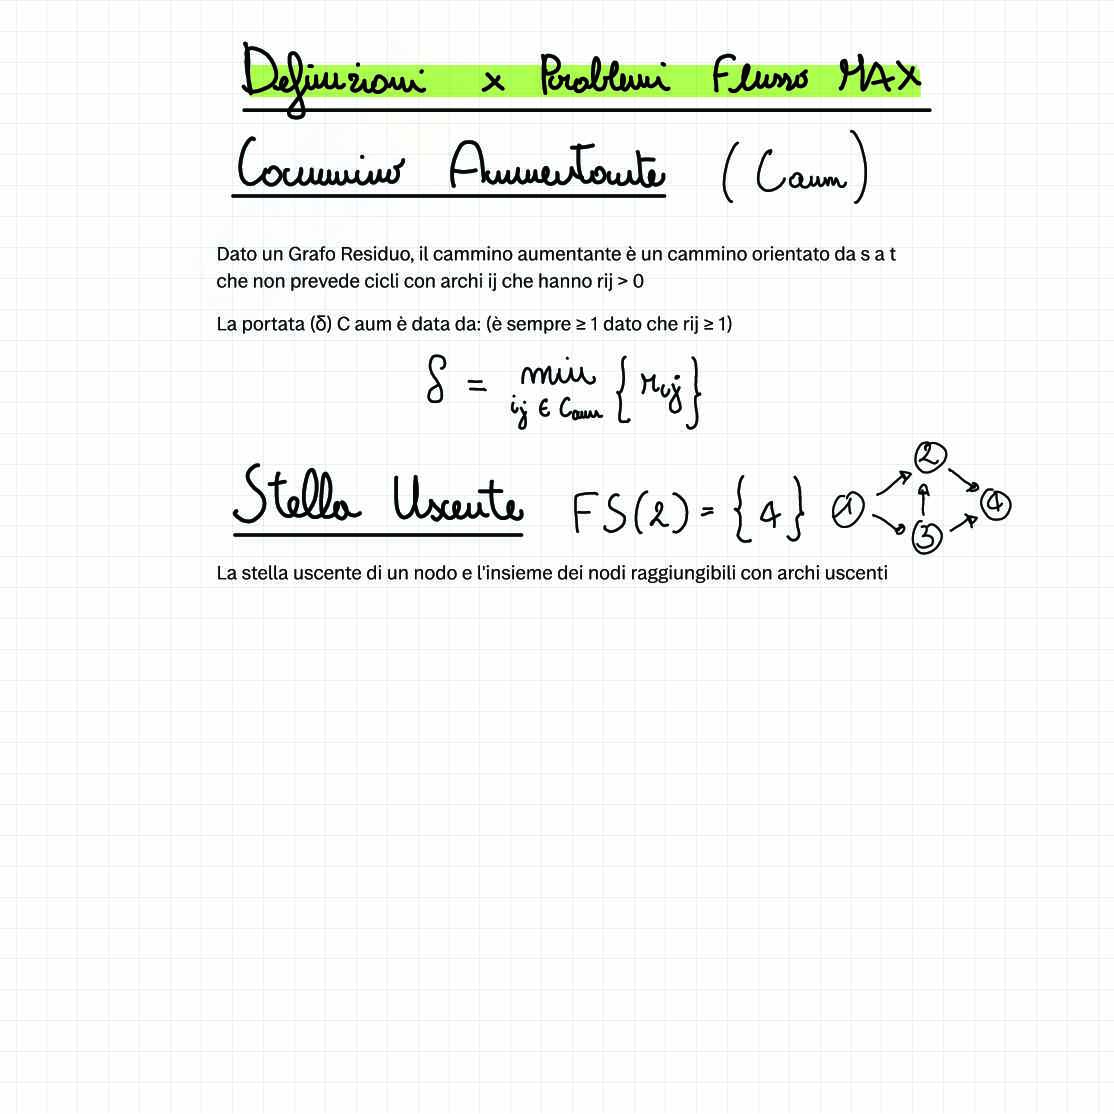 Definizioni x Problemi Flusso MAX
Cammino Aumentante (Caum)
Dato un Grafo Residuo, il cammino aumentante è un cammino orientato da s a t
che non prevede cicli con archi ij che hanno rij > 0
La portata (δ) C aum è data da: (è sempre ≥ 1 dato che rij ≥ 1)
δ = min { rij }
ij ∈ Caum
Stella Uscente FS(2) = {4} 1 2 3 4
La stella uscente di un nodo e l'insieme dei nodi raggiungibili con archi uscenti